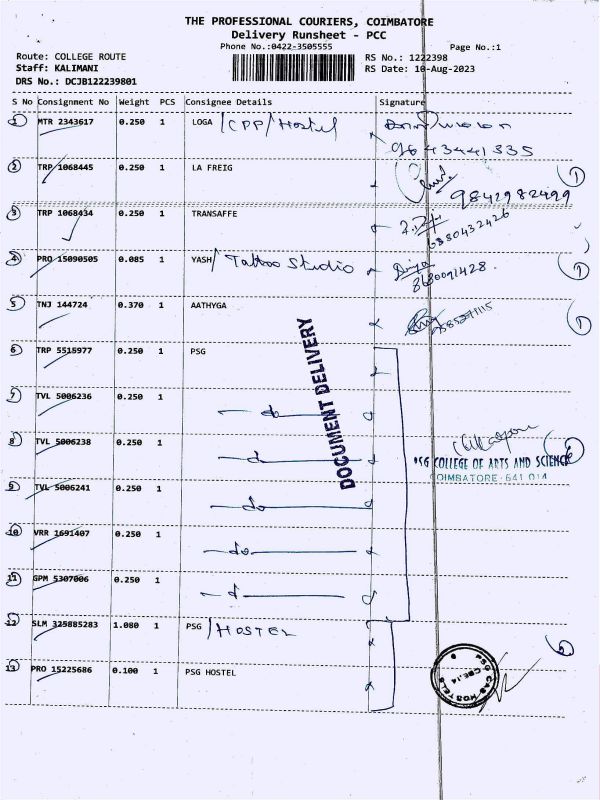 THE PROFESSIONAL COURIERS, COIMBATORE
Delivery Runsheet - PCC
Phone No.:0422-3505555 Page No.:1
Route: COLLEGE ROUTE RS No.: 1222398
Staff: KALIMANI RS Date: 10-Aug-2023
DRS No.: DCJB122239801
S No Consignment No Weight PCS Consignee Details Signature
1 MTR 2343617 0.250 1 LOGA /CPP/Hostel
9643441335
2 TRP 1068445 0.250 1 LA FREIG 1
9842982499
3 TRP 1068434 0.250 1 TRANSAFFE
6380432426
4 PRO 15090505 0.085 1 YASH/ Tattoo Studio Divya 1
8680091428
5 TNJ 144724 0.370 1 AATHYGA 1
6 TRP 5515977 0.250 1 PSG
DOCUMENT DELIVERY
7 TVL 5006236 0.250 1 — do —
8 TVL 5006238 0.250 1 — do —
PSG COLLEGE OF ARTS AND SCIENCE
COIMBATORE-641 014
9 TVL 5006241 0.250 1 — do —
10 VRR 1691407 0.250 1 — do —
11 GPM 5307006 0.250 1 — d —
12 SLM 325885283 1.080 1 PSG /HOSTEL
13 PRO 15225686 0.100 1 PSG HOSTEL
PSG CAS HOSTELS
CBE.14